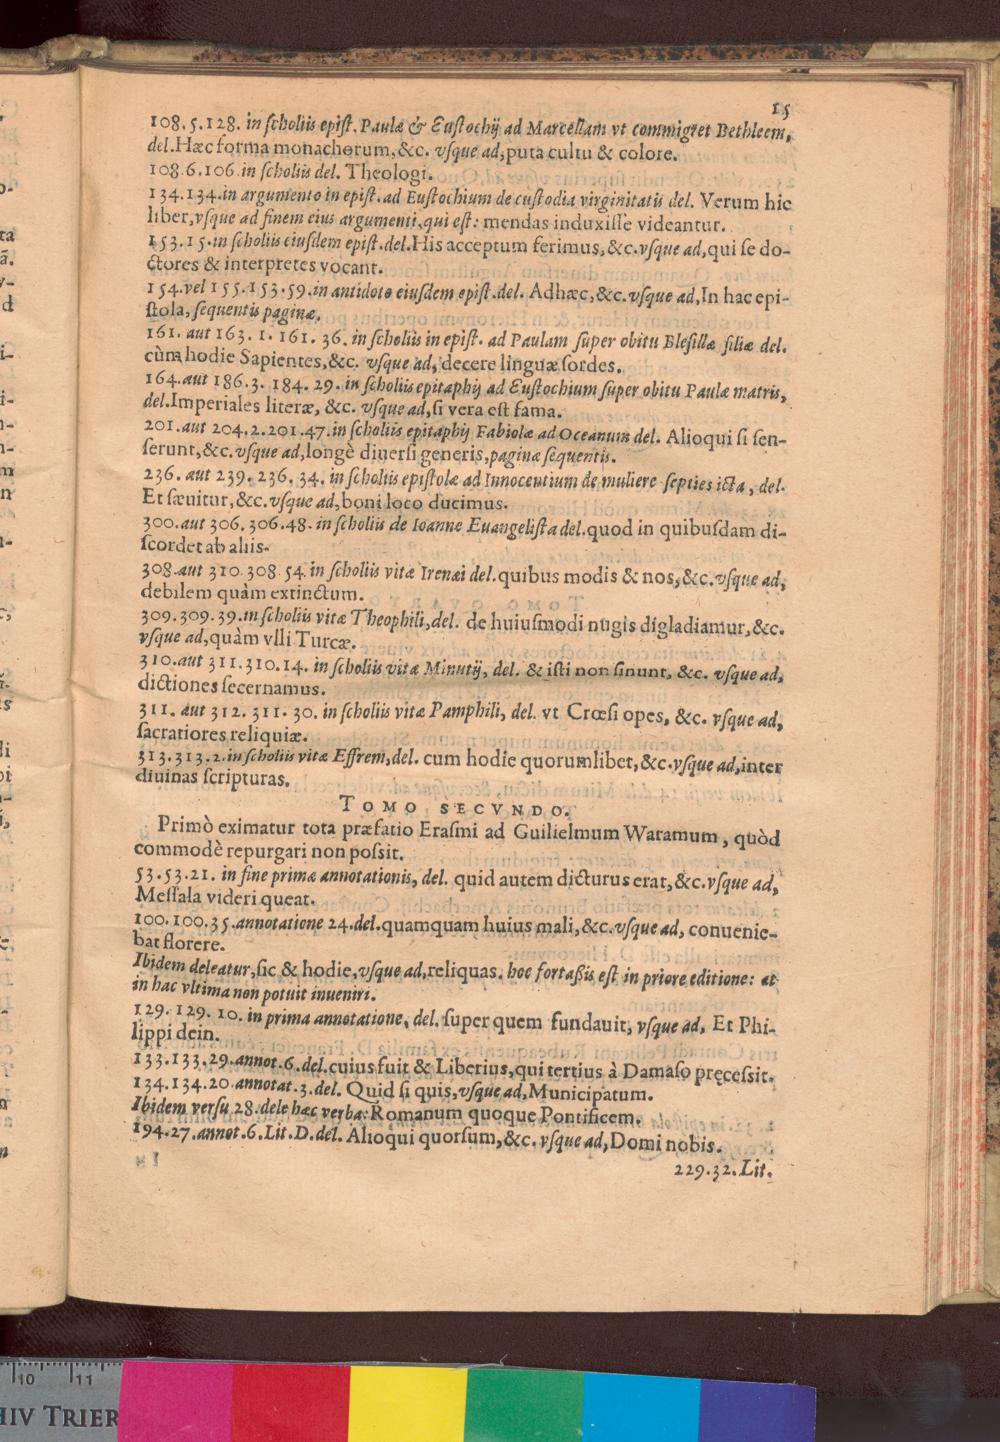 15
108.5.128. in scholiis epist. Paulæ & Eustochij ad Marcellam vt commigret Bethleem,
del. Hæc forma monachorum, &c. vsque ad, puta cultu & colore.
108.6.106. in scholiis del. Theologi.
134.134. in argumento in epist. ad Eustochium de custodia virginitatis del. Verum hic
liber, vsque ad finem eius argumenti, qui est: mendas induxisse videantur.
153.15. in scholiis eiusdem epist. del. His acceptum ferimus, &c. vsque ad, qui se do-
ctores & interpretes vocant.
154. vel 155.153.59. in antidoto eiusdem epist. del. Adhæc, &c. vsque ad, In hac epi-
stola, sequentis paginæ.
161. aut 163. 1. 161. 36. in scholiis in epist. ad Paulam super obitu Blesillæ filiæ del.
cùm hodie Sapientes, &c. vsque ad, decere linguæ sordes.
164. aut 186.3. 184. 29. in scholiis epitaphij ad Eustochium super obitu Paulæ matris,
del. Imperiales literæ, &c. vsque ad, si vera est fama.
201. aut 204.2.201.47. in scholiis epitaphij Fabiolæ ad Oceanum del. Alioqui si sen-
serunt, &c. vsque ad, longè diuersi generis, paginæ sequentis.
236. aut 239. 236. 34. in scholiis epistolæ ad Innocentium de muliere septies icta, del.
Et sæuitur, &c. vsque ad, boni loco ducimus.
300. aut 306. 306.48. in scholiis de Ioanne Euangelista del. quod in quibusdam di-
scordet ab aliis.
308. aut 310. 308. 54. in scholiis vitæ Irenæi del. quibus modis & nos, &c. vsque ad,
debilem quàm extinctum.
309.309.39. in scholiis vitæ Theophili, del. de huiusmodi nugis digladiamur, &c.
vsque ad, quàm vlli Turcæ.
310. aut 311.310.14. in scholiis vitæ Minutij, del. & isti non sinunt, &c. vsque ad,
dictiones secernamus.
311. aut 312. 311. 30. in scholiis vitæ Pamphili, del. vt Crœsi opes, &c. vsque ad,
sacratiores reliquiæ.
313.313.2. in scholiis vitæ Effrem, del. cum hodie quorumlibet, &c. vsque ad, inter
diuinas scripturas.
TOMO SECVNDO.
Primò eximatur tota præfatio Erasmi ad Guilielmum Waramum, quòd
commodè repurgari non possit.
53.53.21. in fine primæ annotationis, del. quid autem dicturus erat, &c. vsque ad,
Messala videri queat.
100.100.35. annotatione 24. del. quamquam huius mali, &c. vsque ad, conuenie-
bat florere.
Ibidem deleatur, sic & hodie, vsque ad, reliquas. hoc fortaßis est in priore editione: at
in hac vltima non potuit inueniri.
129. 129. 10. in prima annotatione, del. super quem fundauit, vsque ad, Et Phi-
lippi dein.
133.133.29. annot. 6. del. cuius fuit & Liberius, qui tertius à Damaso pręcessit.
134.134.20. annotat. 3. del. Quid si quis, vsque ad, Municipatum.
Ibidem versu 28. dele hæc verba: Romanum quoque Pontificem.
194.27. annot. 6. Lit. D. del. Alioqui quorsum, &c. vsque ad, Domi nobis.
229.32. Lit.
10 11
HIV TRIER